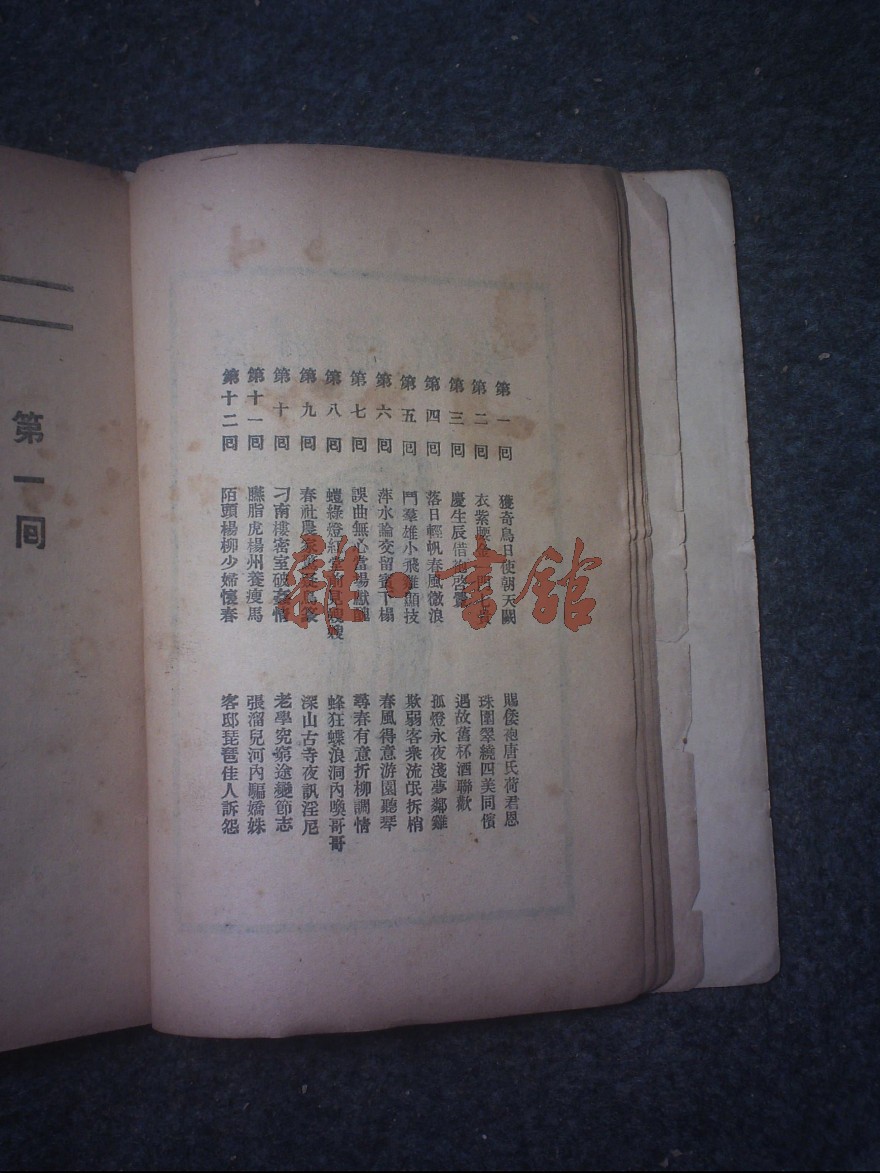 第一回 獲奇鳥日使朝天闕 賜倭袍唐氏荷君恩
第二回 衣紫腰 珠圍翠繞四美同儐
第三回 慶生辰借 遇故舊杯酒聯歡
第四回 落日輕帆春風微浪 孤燈永夜淺夢鄰雞
第五回 鬥羣雄小飛雞顯技 欺弱客衆流氓拆梢
第六回 萍水論交留賓下榻 春風得意游園聽琴
第七回 誤曲無心當場獻醜 尋春有意折柳調情
第八回 蜂狂蝶浪洞內喚哥哥
第九回 春社農家 深山古寺夜訊淫尼
第十回 刁南樓密室破姦情 老學究窮途變節志
第十一回 臙脂虎楊州養瘦馬 張溜兒河內騙嬌姝
第十二回 陌頭楊柳少婦懷春 客邸琵琶佳人訴怨
第一回
雜·書館